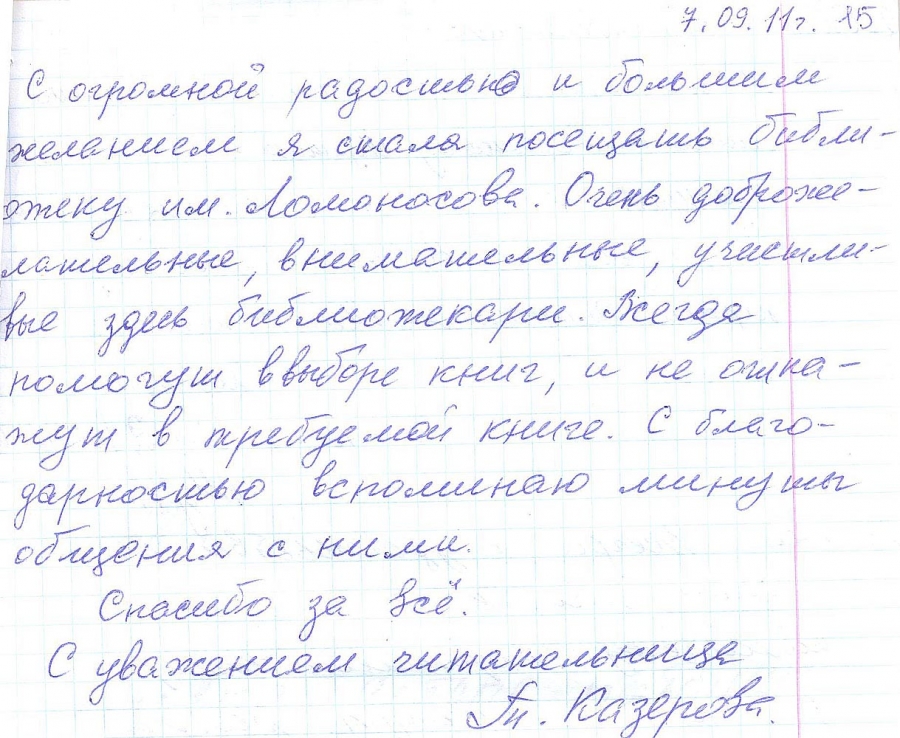 7.09.11г. 15
С огромной радостью и большим
желанием я стала посещать библи-
отеку им. Ломоносова. Очень доброже-
лательные, внимательные, учтли-
вые здесь библиотекари. Всегда
помогут в выборе книг, и не отка-
жут в требуемой книге. С благо-
дарностью вспоминаю минуты
общения с ними.
Спасибо за всё.
С уважением читательница
Казерова.